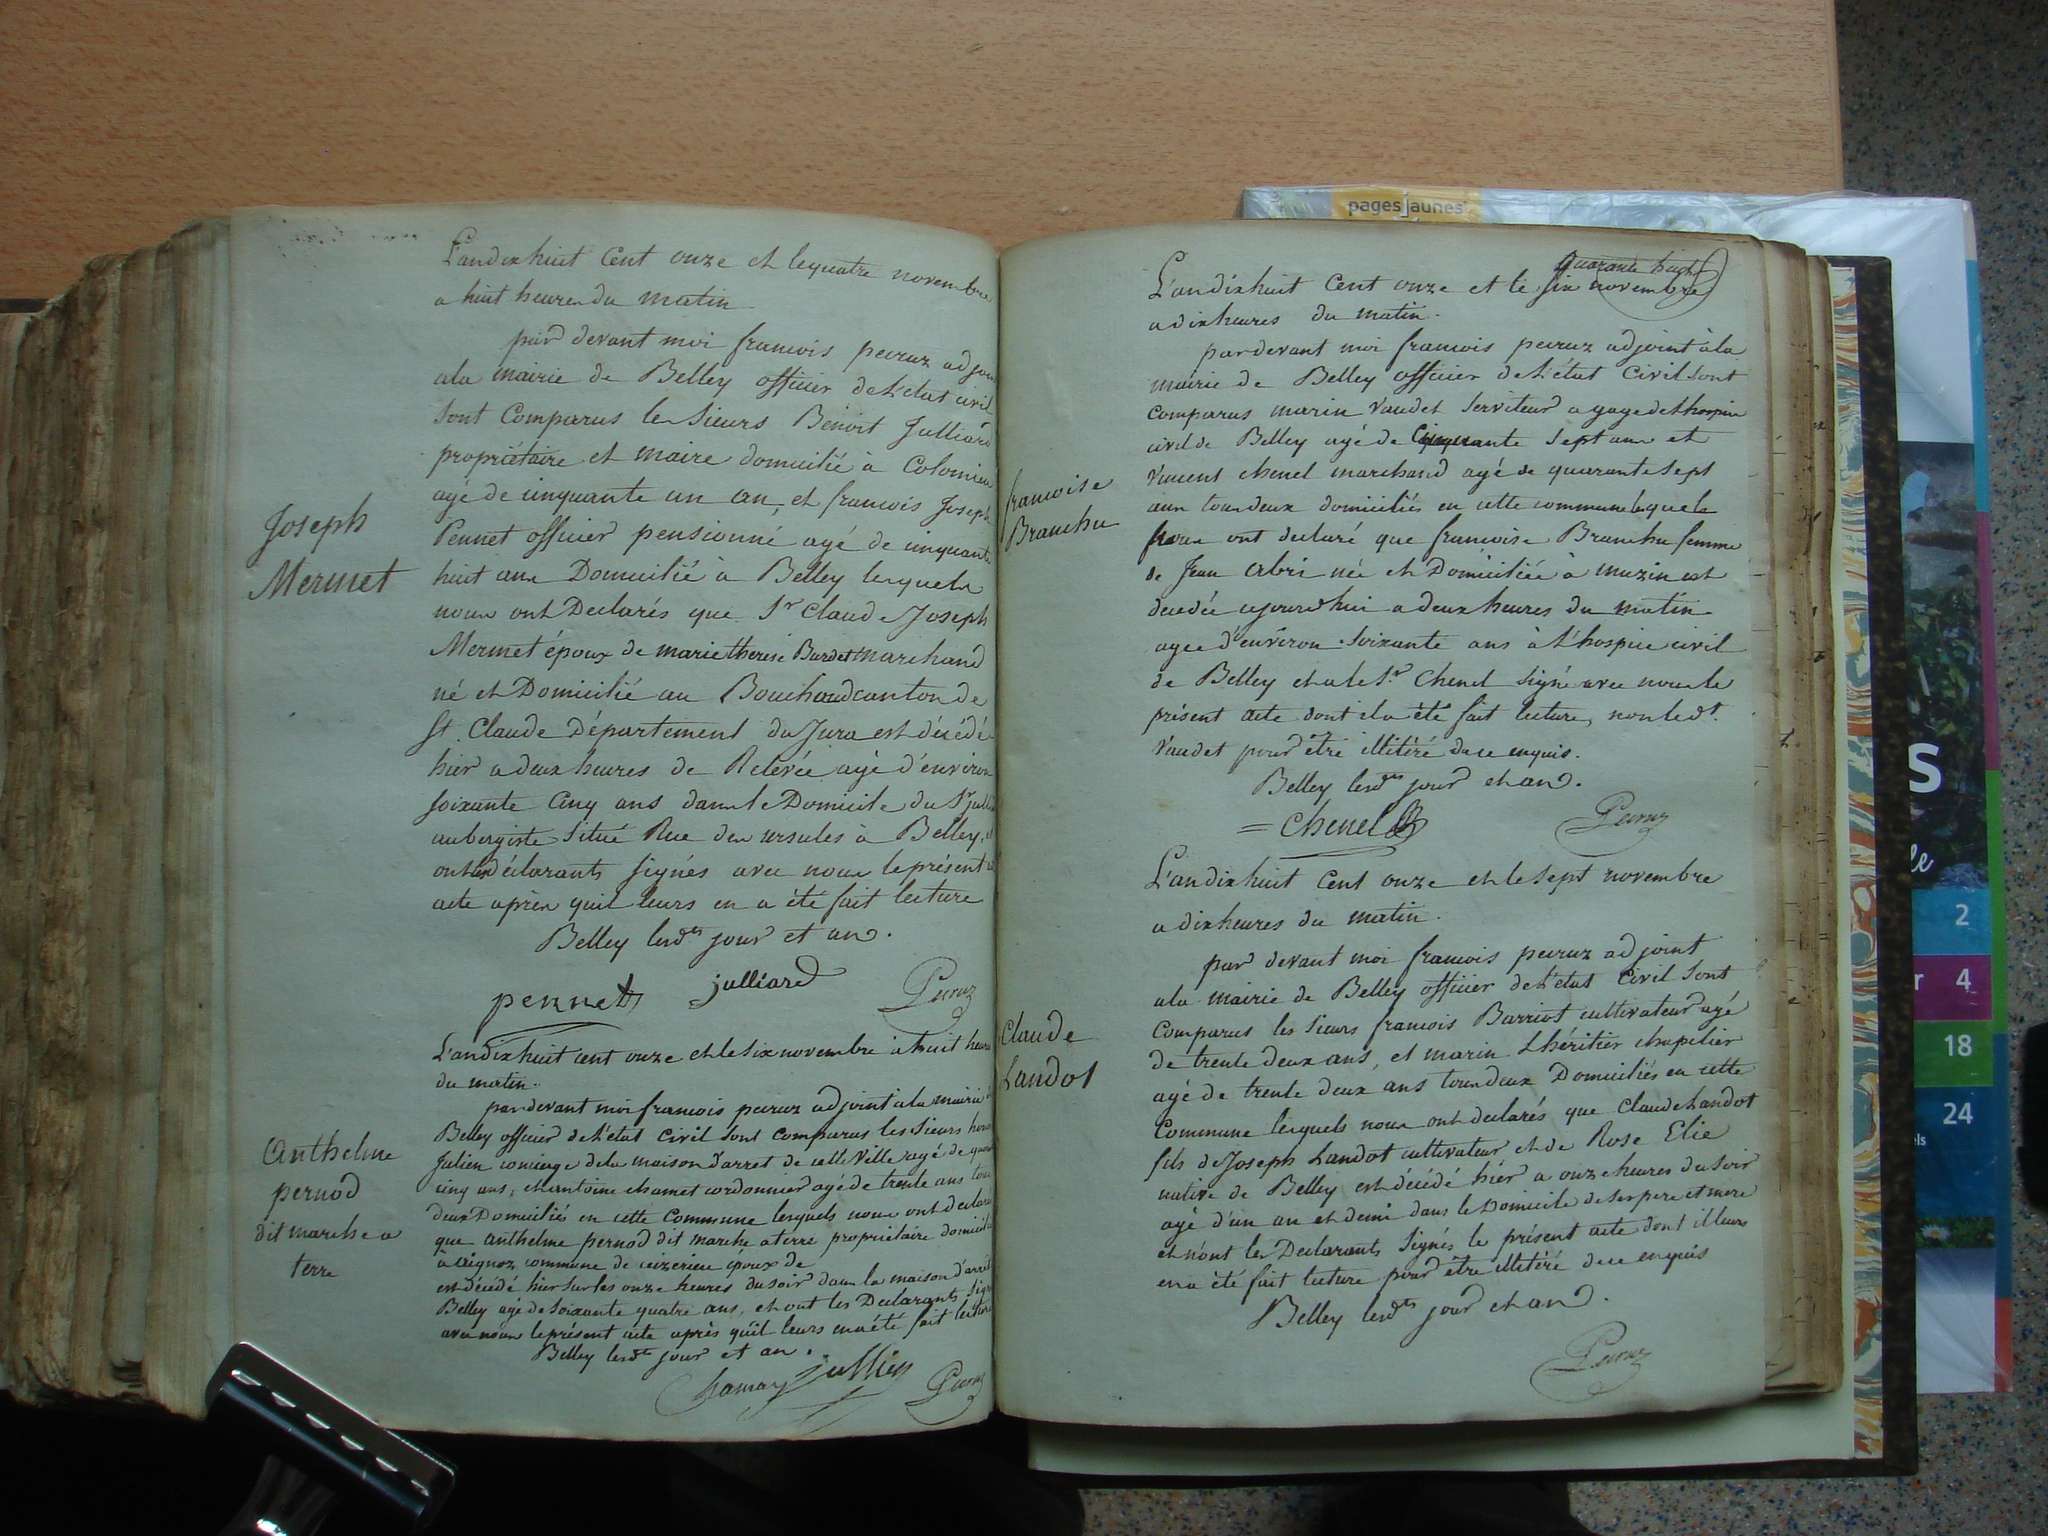 L'an dix huit Cent onze et le quatre novembre
a huit heures du matin
par devant moi francois peuruz adjoin
ala mairie de Belley officier de l'état civil
sont Comparus les Sieurs Benoit Julliard
propriétaire et maire domicilié à Colomieu
agé de cinquante un an, et francois Joseph
Pennet officier pensionné agé de cinquante
huit ans Domicilié à Belley lesquels
nous ont Declarés que Sr Claude Joseph
Joseph
Mermet
Mermet époux de marie therese Burdet marchand
né et Domicilié au Bouchoud canton de
St. Claude Département du Jura est décédé
hier a deux heures de Relevée agé d'environ
soixante Cinq ans dans le Domicile du Sr Julli
aubergiste Situé Rue des ursules à Belley, et
ont les déclarants signés avec nous le présent
acte après quil leurs en a été fait lecture
Belley lesdts jour et an.
pennet julliard
L'an dix huit cent onze et le six novembre à huit heures
du matin.
par devant moi francois peuruz adjoint ala mairie
Belley officier de l'état civil sont comparus les Sieurs
Julien concierge de la maison d'arret de cette ville agé de quar
cinq ans, et antoine chamet cordonnier agé de trente ans tous
deux Domiciliés en cette Commune lesquels nous ont declaré
que anthelme pernod dit marche a terre propriétaire domicilié
à aignoz commune de ceizerieu époux de
est décédé hier sur les onze heures du soir dans la maison d'arrêt
Belley agé de soixante quatre ans, et ont les Declarants Signé
avec nous le présent acte après quil leurs en a été fait lecture
Belley lesdts jour et an.
Anthelme
pernod
dit marche a
terre
Jullien
quarante huit
L'an dix huit Cent onze et le six novembre
a dix heures du matin.
par devant moi francois peuruz adjoint à la
mairie de Belley officier de l'état Civil sont
comparus marin Vaudet Serviteur a gage de l'hospice
civil de Belley agé de Cinquante Sept ans et
Vincent chenel marchand agé de quarante sept
ans tous deux domiciliés en cette commune lesquels
nous ont declaré que francoise Branchu femme
de Jean Abri née et Domiciliée à muzin est
decedée cejourd'hui a deux heures du matin
agée d'environ soixante ans à l'hospice civil
de Belley et a le Sr. Chenel signé avec nous le
présent acte dont il a été fait lecture, non led.
Vaudet pour être illitéré de ce enquis.
Belley lesdts jour et an.
francoise
Branchu
= Chenel
L'an dix huit Cent onze et le Sept novembre
a dix heures du matin.
par devant moi francois peuruz adjoint
ala mairie de Belley officier de l'état Civil sont
Comparus les Sieurs francois Barriot cultivateur agé
de trente deux ans, et marin Lhéritier chapelier
agé de trente deux ans tous deux Domiciliés en cette
Commune lesquels nous ont declarés que Claude Landot
fils de Joseph Landot cultivateur et de Rose Elie
native de Belley est décédé hier a onze heures du soir
agé d'un an et demi dans le Domicile de ses pere et mere
et n'ont les Declarants Signés le présent acte dont il leurs
en a été fait lecture pour etre illitéré de ce enquis
Belley lesdts jour et an.
Claude
Landot
pages jaunes
2
4
18
24